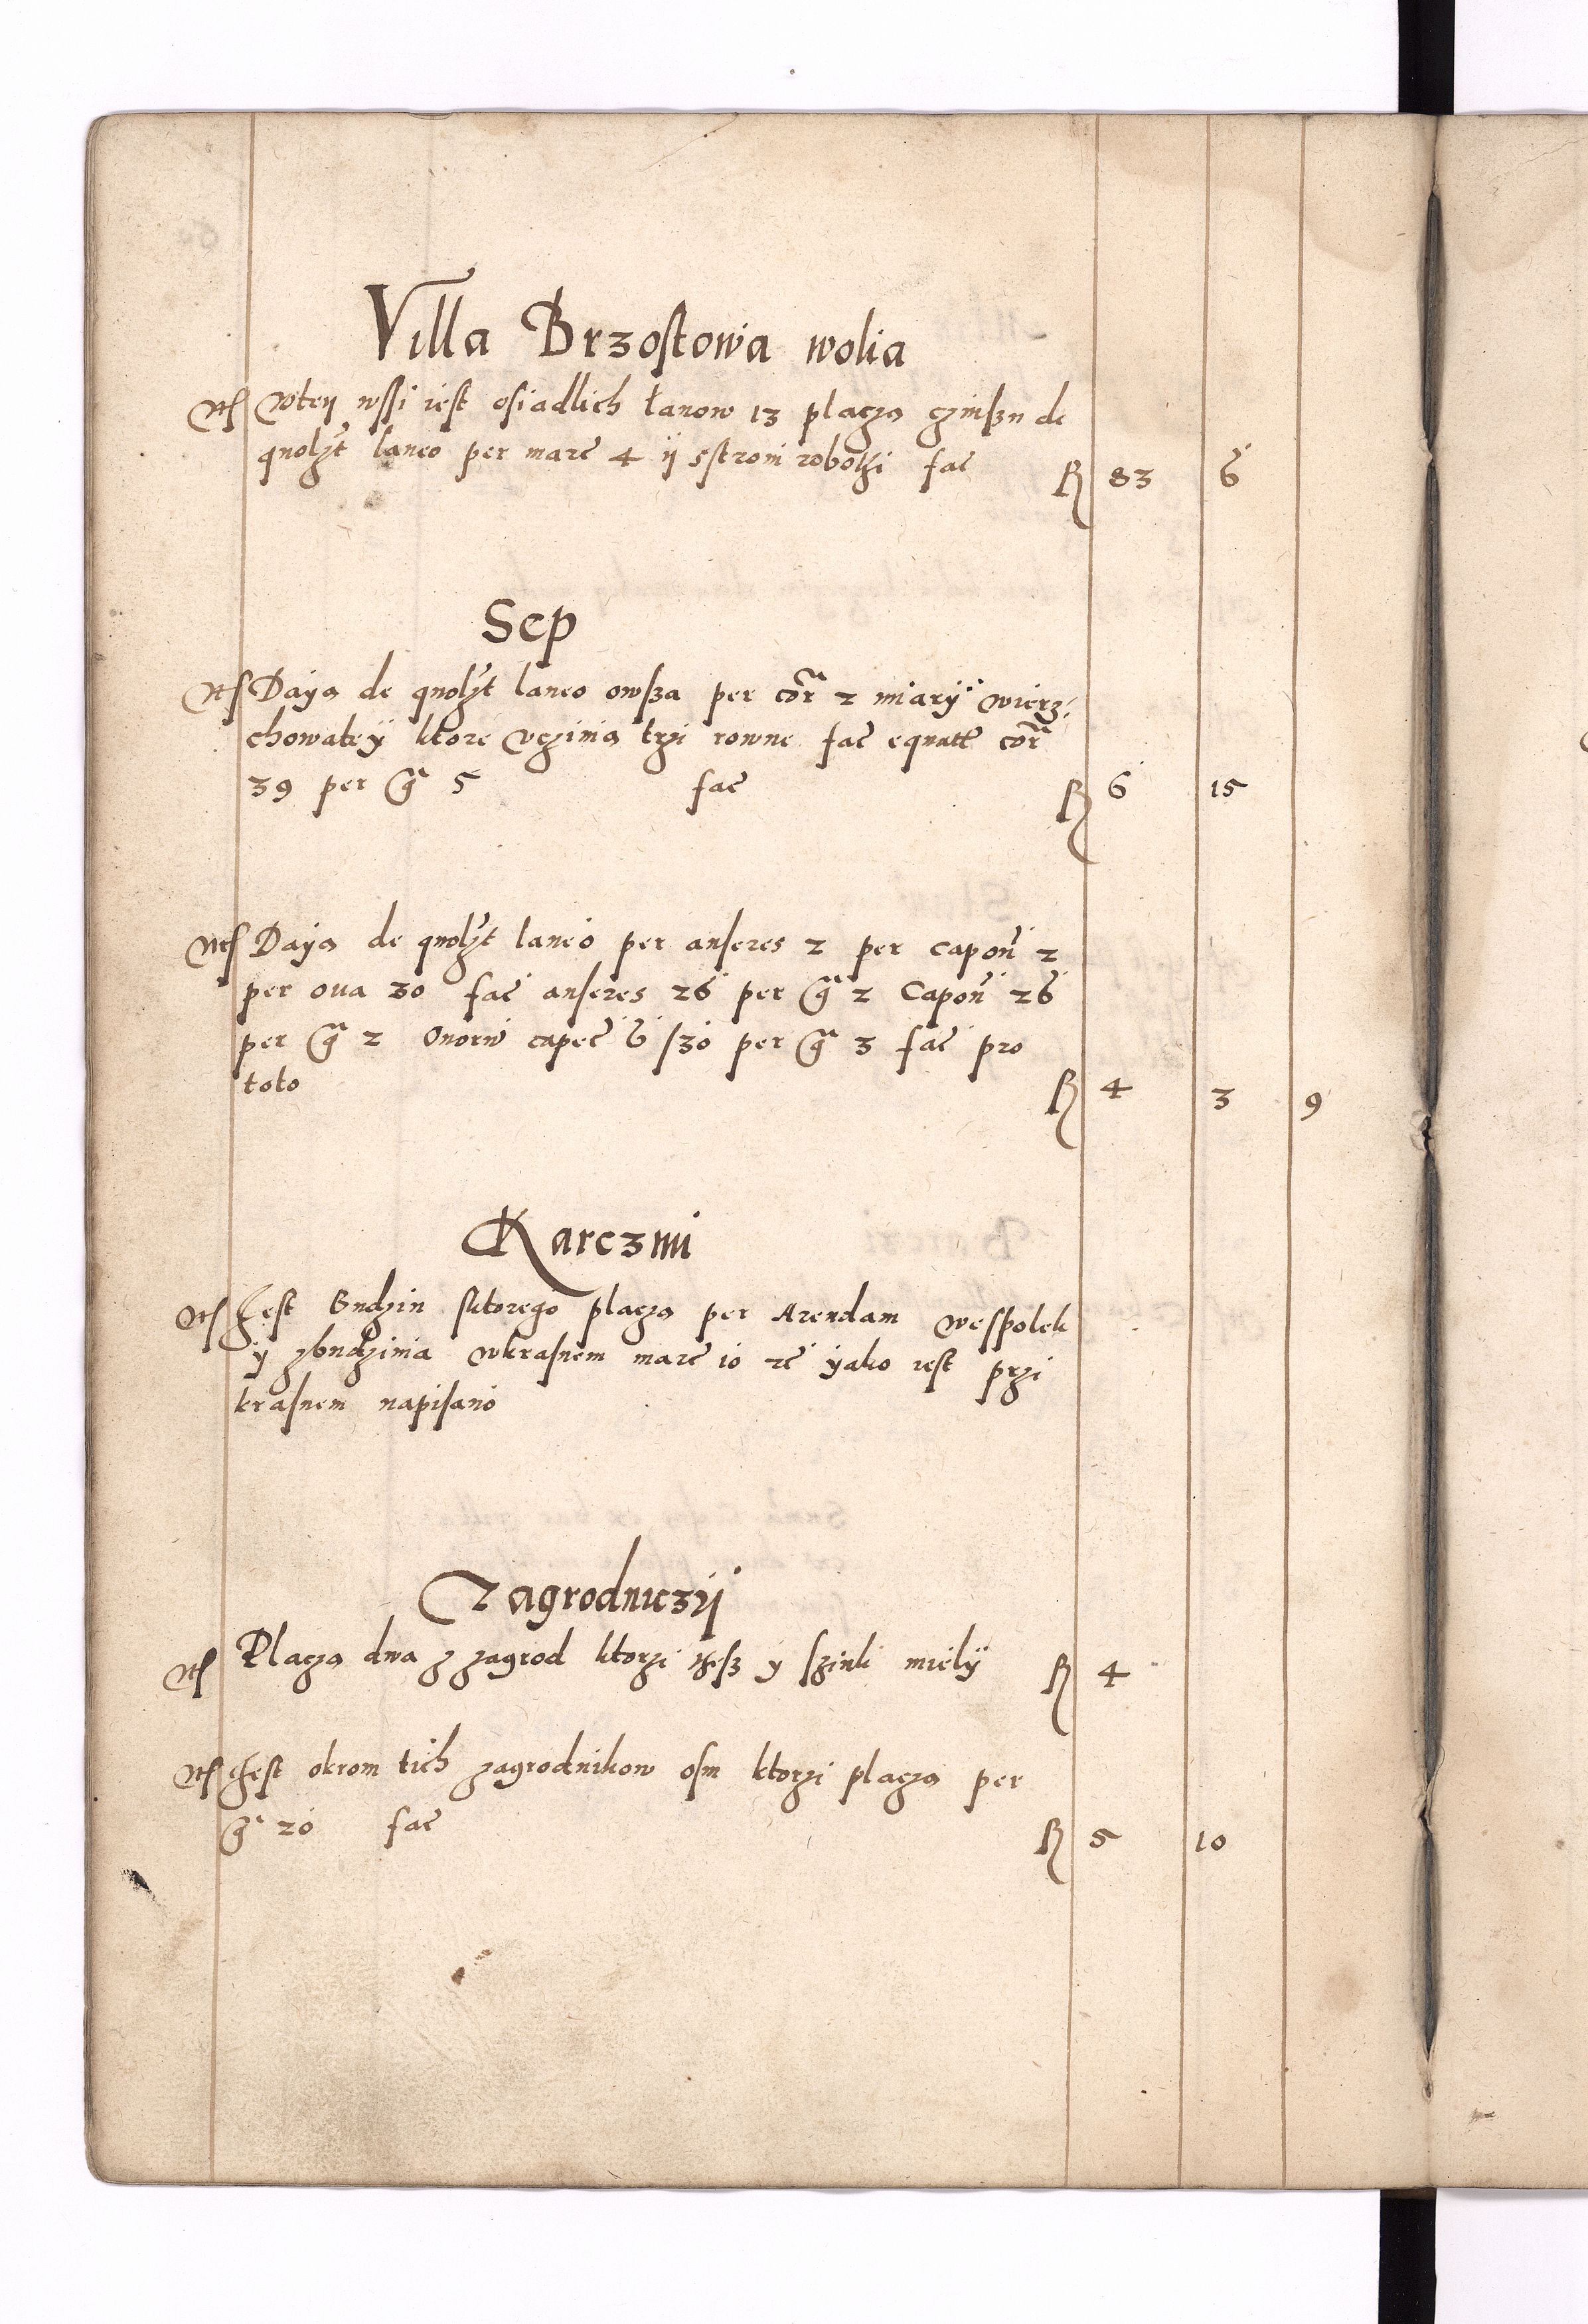 Villa Brzostowia wolia
Wtey wssi iest osiadlich łanow 13 placza czinszu de
quolżt laneo per marc 4 ÿ sstroni robothi fac R 83 6
Sep
Daya de quolżt laneo owsza per cor 2 miarÿ wierz:
chowateÿ ktore vczinia trzi rowne fac equatt cor
39 per g 5 fac R 6 15
Daya de quolżt laneo per anseres 2 per capon 2
per oua 30 fac anseres 26 per g 2 Capon 26
per g 2 Ouorum capec 6 / 30 per g 3 fac pro
toto R 4 3 9
Karczmi
Jest Budzin sktorego placza per Arendam wespolek
y zbudzinia wkrasnem marc 10 rc ÿako iest przi
krasnem napisano
Zagrodniczÿ
Placza dwa z zagrod ktorzi tesz y szinki mielÿ R 4
Jest okrom tich zagrodnikow osm ktorzi placza per
g 20 fac R 5 10